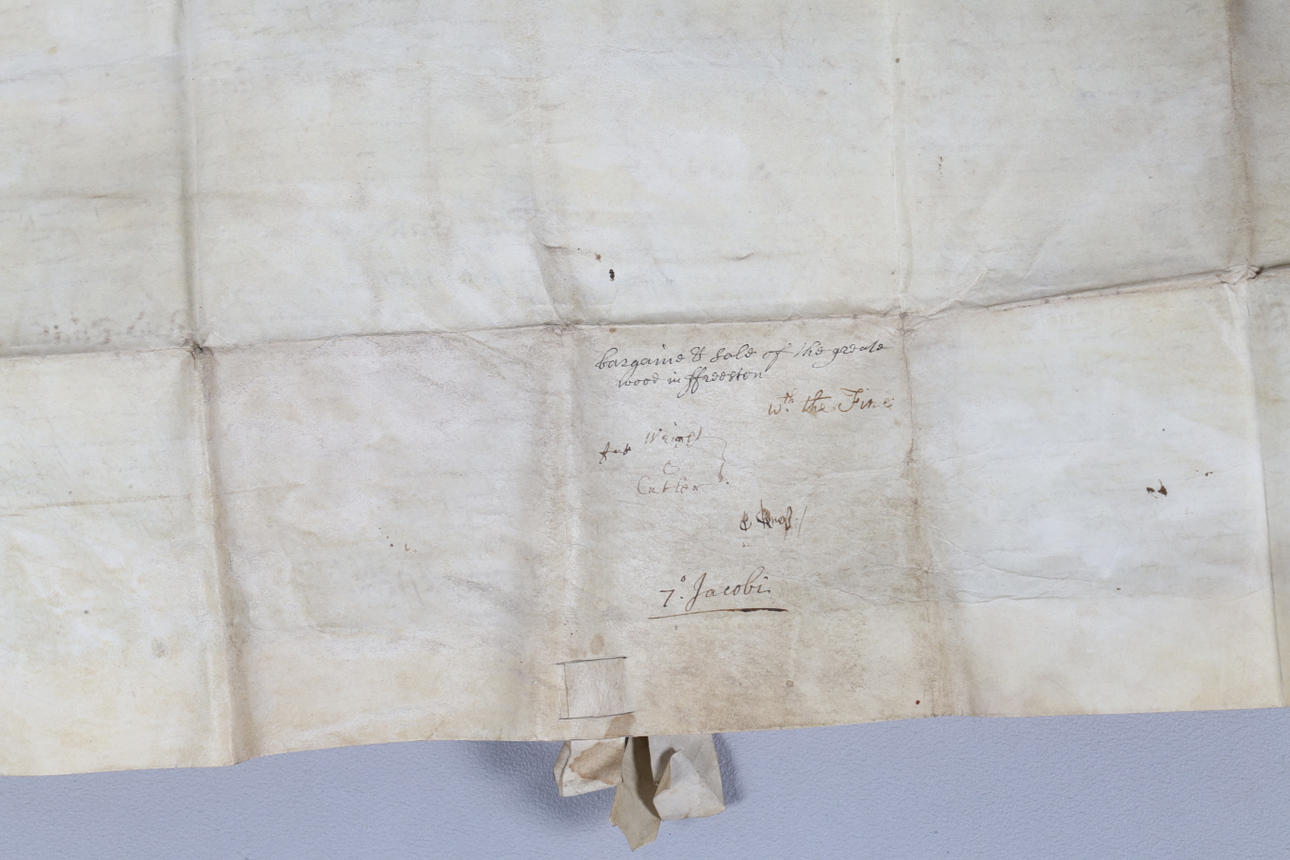 bargaine & Sale of the greate
wood in ffreeston
wth. the Fine
Cutler
7o. Jacobi